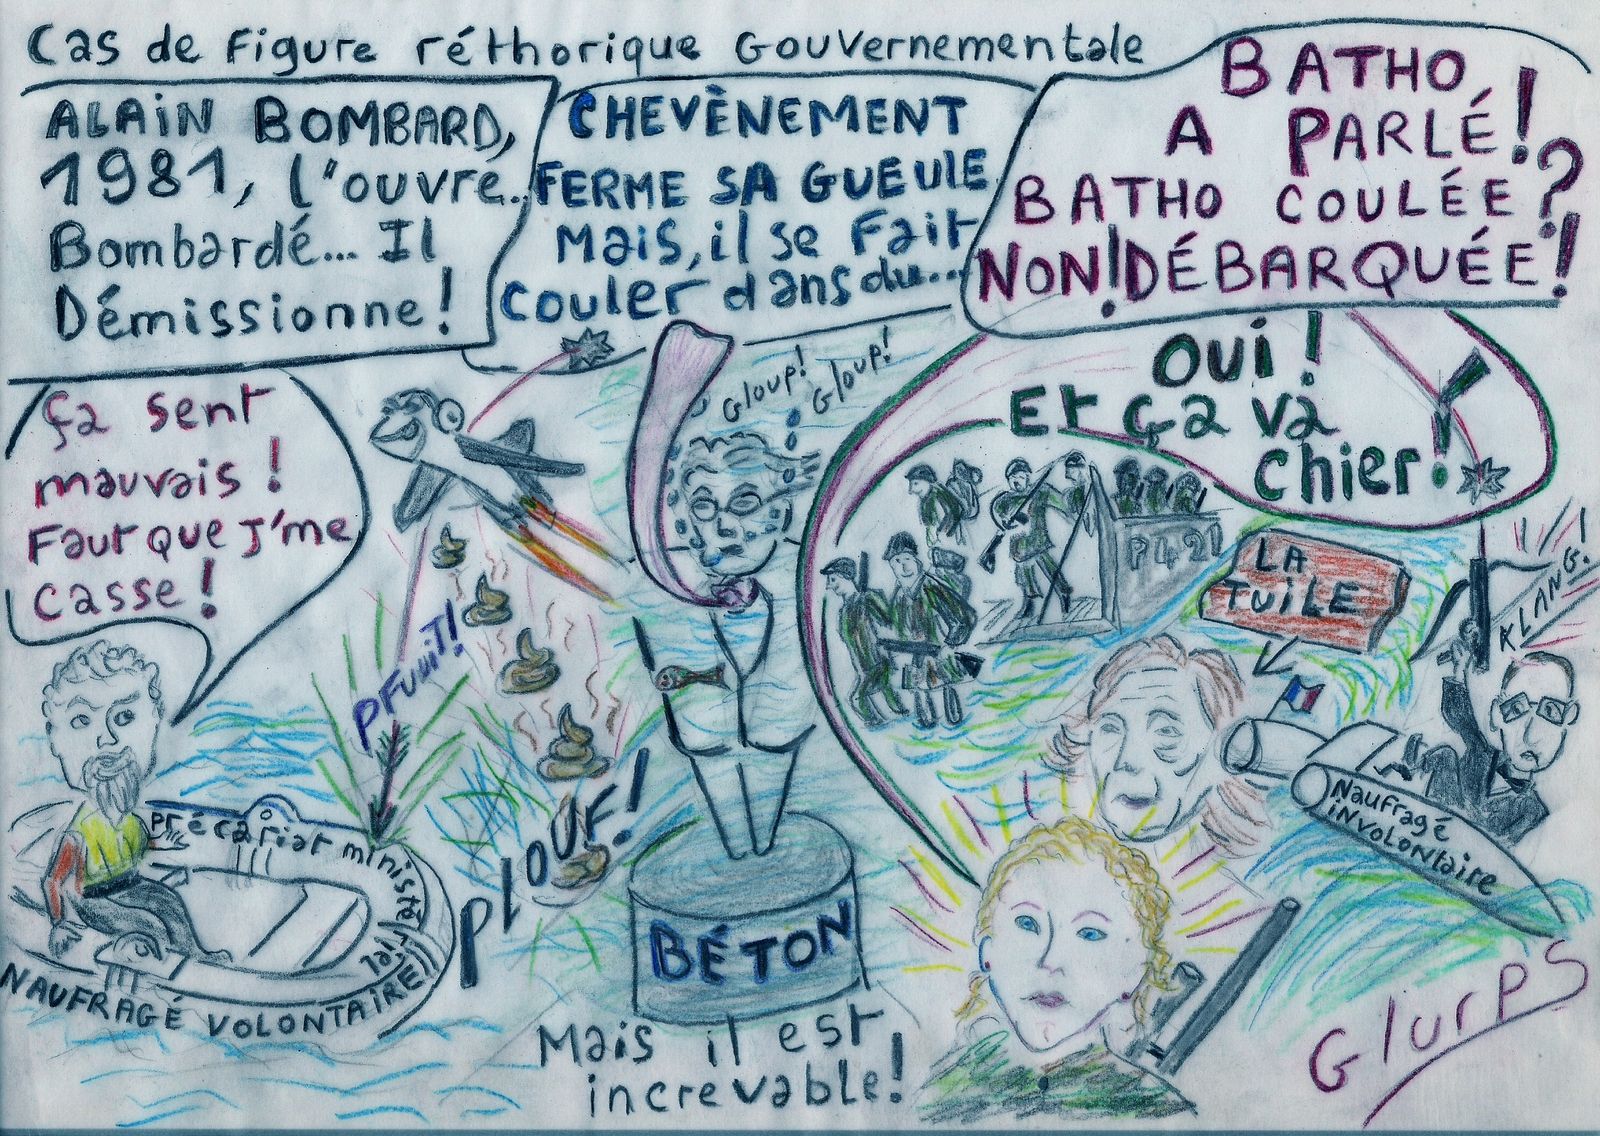 Cas de Figure réthorique Gouvernementale
ALAIN BOMBARD,
1981, l'ouvre..
Bombardé... Il
Démissionne!
CHEVÈNEMENT
FERME SA GUEULE
Mais, il se Fait
couler dans du...
BATHO
A PARLÉ!
BATHO COULÉE?
NON! DÉBARQUÉE!
Ça sent
mauvais!
Faut que J'me
casse!
Gloup!
Gloup!
OUI!
Et ça va
chier!
P421
LA
TUILE
KLANG!
PFUUIT!
Précariat ministériel
NAUFRAGÉ VOLONTAIRE
PLOUF!
BÉTON
Mais il est
increvable!
Naufragé
involontaire
GlurPS